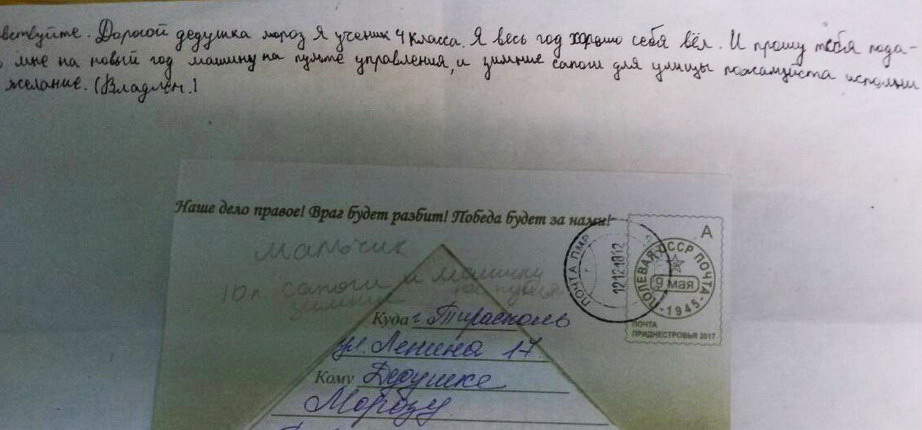 вствуйте. Дорогой дедушка мороз я ученик 4 класса. Я весь год хорошо себя вёл. И прошу тебя пода-
мне на новый год машину на пульте управления, и зимние сапоги для улицы пожалуйста исполни
желание. (Владлен.)
Наше дело правое! Враг будет разбит! Победа будет за нами!
мальчик
10 л. сапоги и машинку
зимние на пульте
Куда г. Тирасполь
ул. Ленина 17
Кому Дедушке
Морозу
ПОЧТА ПМР
121218 12
А
ПОЛЕВАЯ СССР ПОЧТА
9 мая
1945
ПОЧТА
ПРИДНЕСТРОВЬЯ 2017